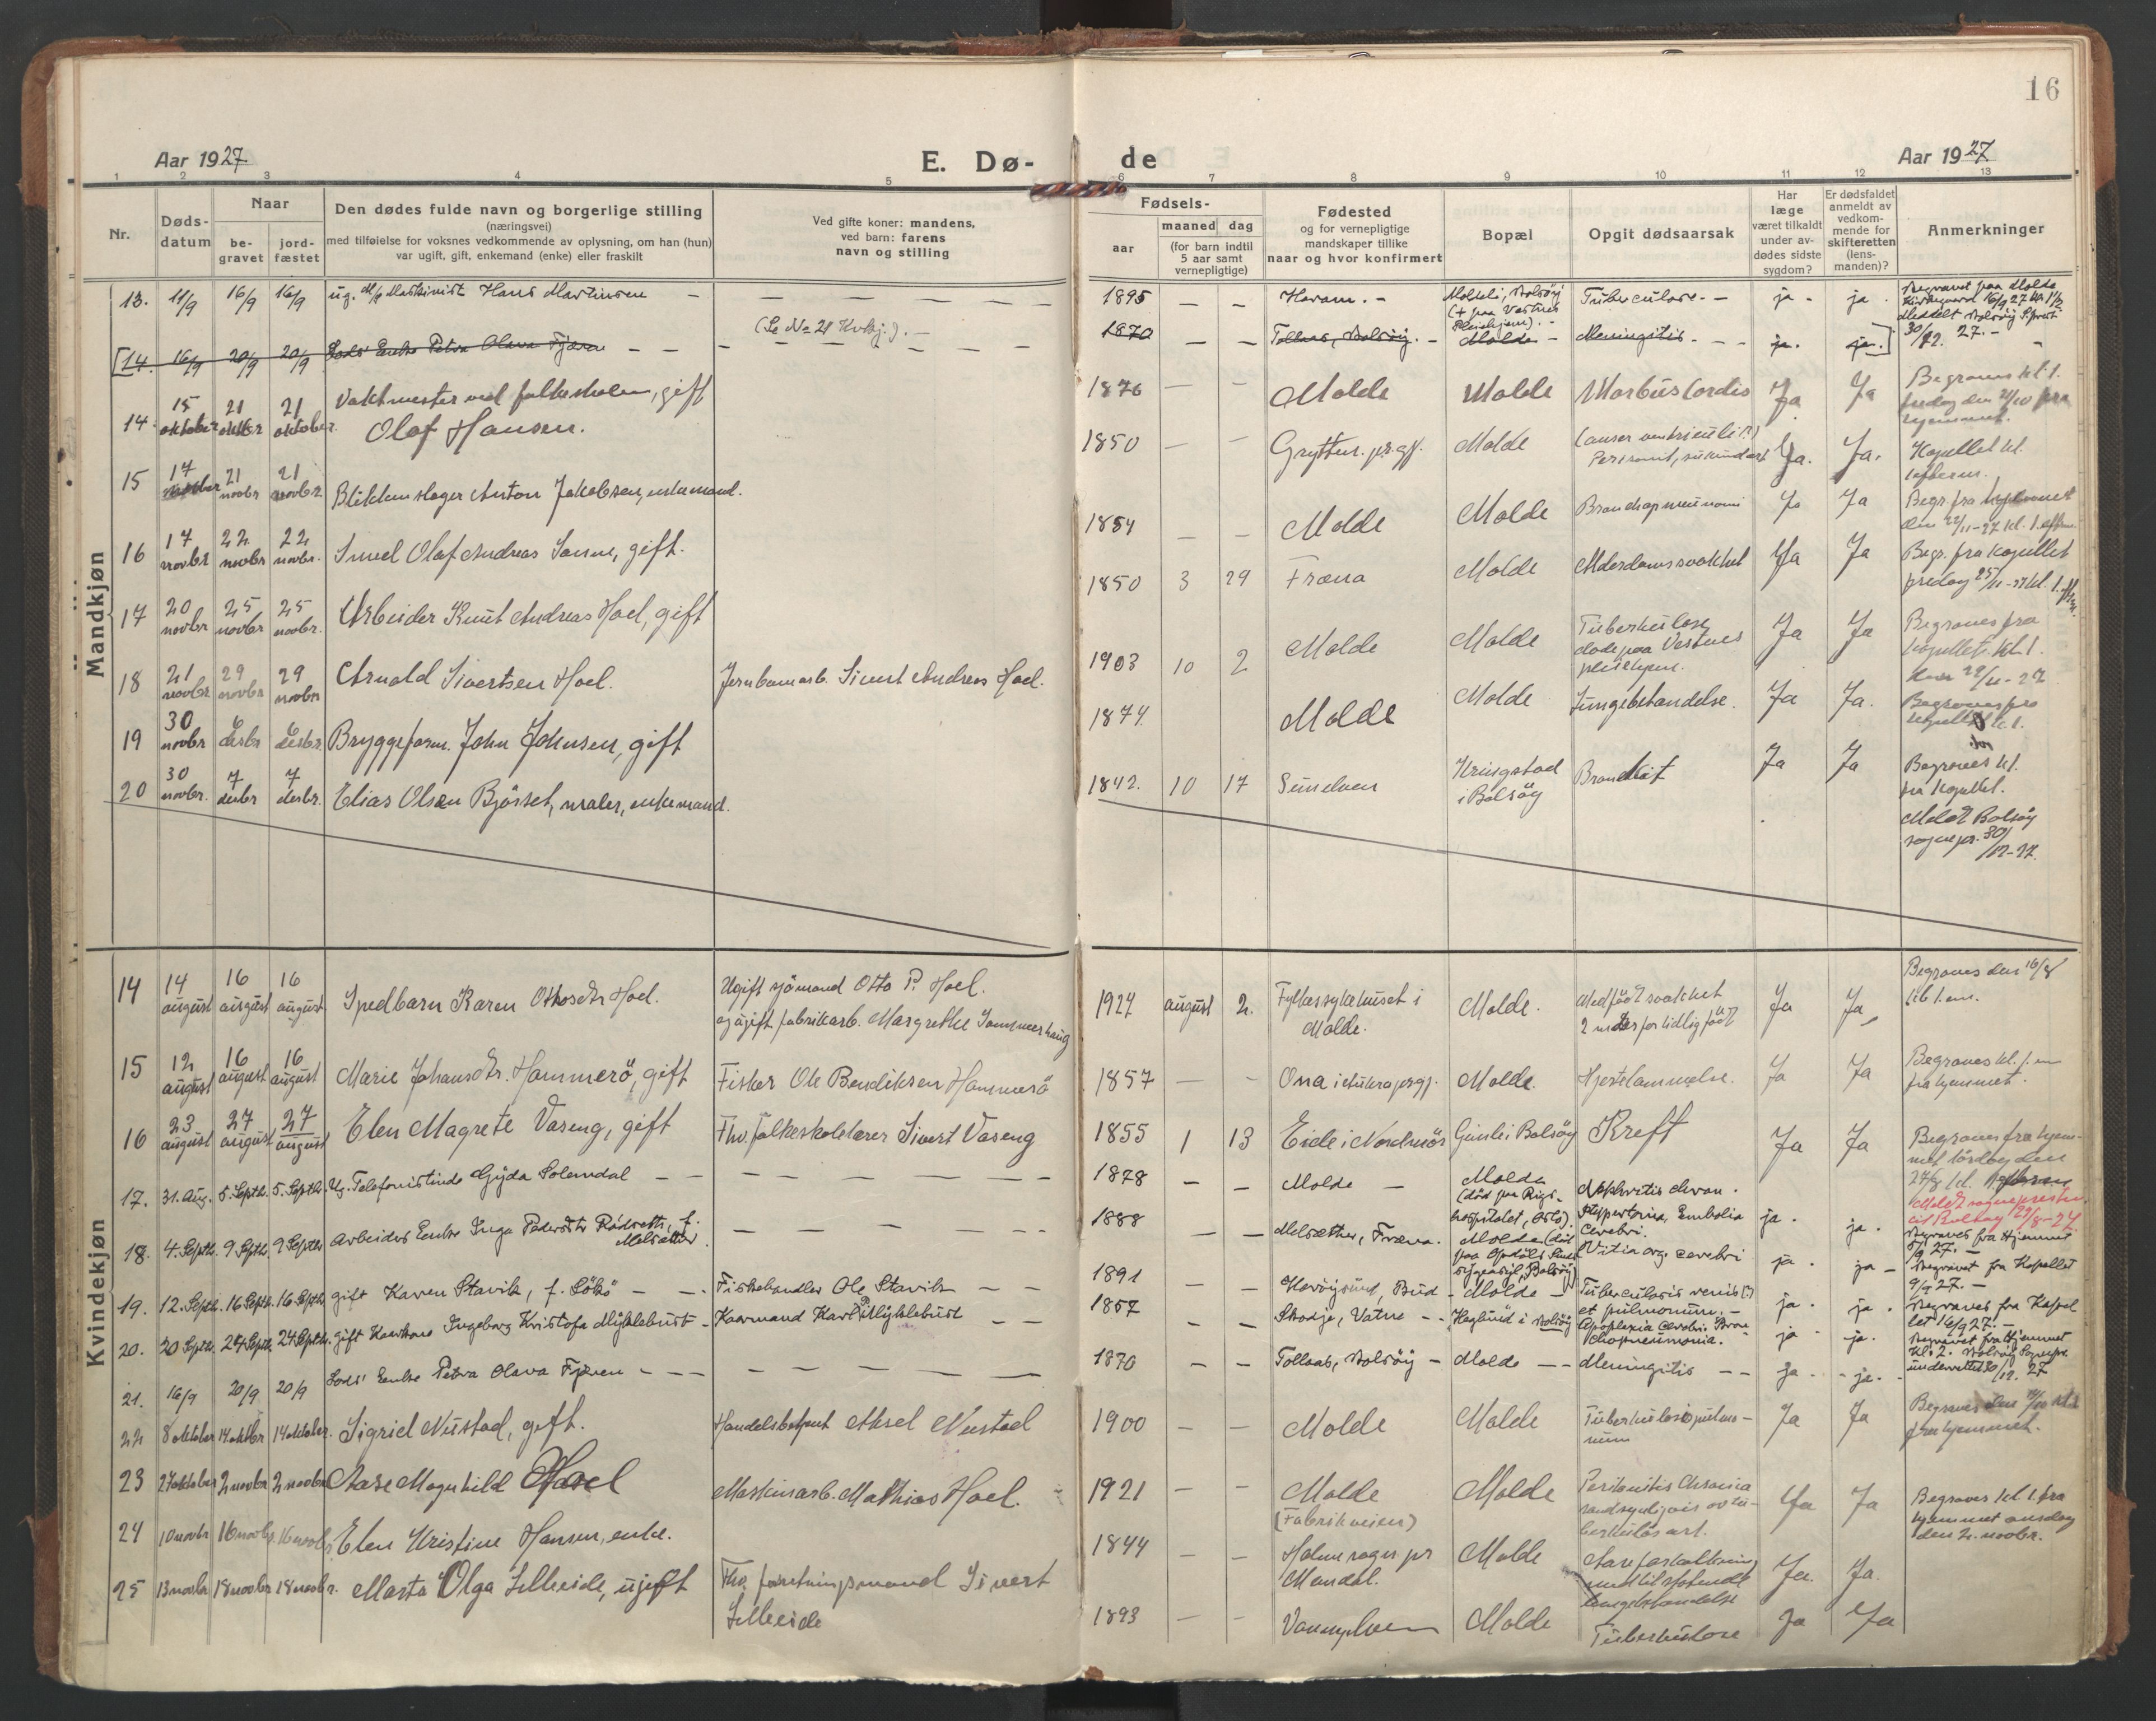 16
Aar 1927
E. Dø-
de
Aar 1927.
1 2 3 4 5 6 7 8 9 10 11 12 13
Nr.
Døds-
datum
Naar
be-
gravet
jord-
fæstet
Den dødes fulde navn og borgerlige stilling
(næringsvei)
med tilføielse for voksnes vedkommende av oplysning, om han (hun)
var ugift, gift, enkemand (enke) eller fraskilt
Ved gifte koner: mandens,
ved barn: farens
navn og stilling
Fødsels-
aar
maaned dag
(for barn indtil
5 aar samt
vernepligtige)
Fødested
og for vernepligtige
mandskaper tillike
naar og hvor konfirmert
Bopæl
Opgit dødsaarsak
Har
læge
været tilkaldt
under av-
dødes sidste
sygdom?
Er dødsfaldet
anmeldt av
vedkom-
mende for
skifteretten
(lens-
manden)?
Anmerkninger
Mandkjøn
13. 11/9 16/9 16/9 ug. Maskinist Hans Martinsen — — — — — —
1895 — — Haram. - Tuberculose. - ja. ja.
Begravet paa Molde
(+ paa Vestnes
Pleiehjem). -
(Se No 21 Kvkj.). —
[14. 16/9 20/9 20/9 Enke Petra Olava Fjæren — — — — — — —
1870 — — Tollaas, Bolsøy. - Molde - Meningitis. - - ja. ja.]
30/12. 27. -
14. 15 oktober 21 oktbr 21 oktober. Vaktmester ved folkeskolen, gift
Olaf Hansen.
1876 — — Molde Molde Morbus Cordis Ja Ja
Begraves kl. 1.
fredag den 21/10 fra
hjemmet.
15 17 novbr 21 novbr 21 novbr. Blikkenslager Anton Jakobsen, enkemand.
1850 — — Grytten prgj. Molde Cancer ventriculi (?) Ja. Ja.
Kapellet kl.
16 17 novbr 22 novbr 22 novbr. Smed Olaf Andreas Sanne, gift.
1854 — — Molde Molde Bronchopneumoni Ja Ja
Begr. fra hjemmet
den 22/11-27 kl. 1 efm.
17 20 novbr 25 novbr 25 novbr. Arbeider Knut Andreas Hoel, gift
1850 3 29 Fræna Molde Alderdomssvakhet Ja Ja
Begr. fra kapellet
fredag 25/11-27 kl. 1.
18 21 novbr 29 novbr 29 novbr Arnold Sivertsen Hoel. Jernbanearb. Sivert Andreas Hoel.
1903 10 2 Molde Molde Tuberkulose Ja Ja
døde paa Vestnes
pleiehjem.
Begraves fra
kapellet kl. 1.
29/11-27
19 30 novbr 6 desbr 6 desbr Bryggeform. John Johnsen, gift
1874. Molde Molde Lungebetendelse. Ja Ja.
Begraves fra
kapellet kl. 1.
20 30 novbr. 7 desbr 7 desbr. Elias Olsen Bjørset, maler, enkemand.
1842. 10 17 Sunelven Kringstad
i Bolsøy Ja Ja
Begraves kl. 1
fra Kapellet.
Meldt Bolsøy
sognepr. 30/12-27.
Kvindekjøn
14 14 august 16 august 16 august Spedbarn Karen Ottosdtr Hoel. Ugift sjømand Otto P. Hoel.
og ugift fabrikarb. Margrethe Sommerhaug
1927 august 2. Fylkessykehuset i
Molde. Molde. Medfødt svakhet Ja Ja
2 mdr for tidlig født
Begraves den 16/8
15 12 august 16 august 16 august Marie Johansdtr. Hammerø, gift Fisker Ole Bendiksen Hammerø
1857 — — Ona i prgj. Molde. Hjertelammelse. Ja Ja
Begraves kl. 1
fra hjemmet.
16 23 august 27 august 27 august Elen Magrete Vaseng, gift Fhv. folkeskolelærer Sivert Vaseng
1855 1 13 Eide i Nordmør Gimle i Bolsøy Kreft Ja Ja
Begraves fra hjem-
met lørdag den
27/8 kl.
Meldt sognepresten
til Bolsøy 29/8-27
17. 31. Aug. 5. Septb. 5. Septb. Ug. Telefonistinde Gyda Solemdal — — — — — — — —
1878 — — Molde — Molde
(død paa Rigs-
hospitalet, Oslo). Nephritis chron. ja. ja.
Begraves fra Hjemmet
5/9 27. -
18. 4. Septb. 9. Septb. 9 Septbr Arbeider Enke Inga Pedersdtr Rødseth, f.
Melsæther. — — — — —
1888 — — Melsæther, Fræna. Molde (død Embolia
Cerebri. ja. ja -
Begravet fra Kapellet
9/9 27. -
19. 12. Septb. 16 Septb. 16. Septb. gift Karen Stavik, f. — — Fiskehandler Ole Stavik — —
1891 — — Bud - Molde - Tuberculosis renis (?)
et pulmonum. - ja. ja.
Begraves fra Kapel
let 16/9 27. -
20. 20 Septb. 24 Septb. 24 Septb. gift Ingeborg Kristofa Myklebust - Karl P. Myklebust — —
1857 — — Skodje, Vatne - - i Bolsøy Apoplexia Cerebri. Bron-
chopneumonia. ja. ja.
Begravet fra Hjemmet
Kl. 2. Bolsøy Sognepr.
underrettet 30/12. 27
21. 16/9 20/9 20/9 Enke Petra Olava Fjæren — — — — — — —
1870 — — Tollaas, Bolsøy - Molde — Meningitis — ja. ja.
22 8 oktober 14 oktbr 14 oktober. Sigrid Nustad, gift. Aksel Nustad
1900 — — Molde Molde Tuberkulosis pulmo-
num Ja Ja
fra hjemmet.
23 27 oktober 2 novbr 2 novbr Aase Magnhild Hoel Maskinarb. Mathias Hoel.
1921 — — Molde
(Fabrikveien) Molde Ja Ja
Begraves kl. 1 fra
hjemmet onsdag
den 2. novbr.
24 10 novbr 16 novbr. 16 novbr Elen Kristine Hansen, enke.
1844 — — Molde Ja. Ja.
Mandal.
25 13 novbr 18 novbr 18 novbr. Marta Olga Lilleeide, ugift Fhv. forretningsmand Sivert
Lilleeide
1893 — — Vannylven Molde Tuberkulose Ja Ja